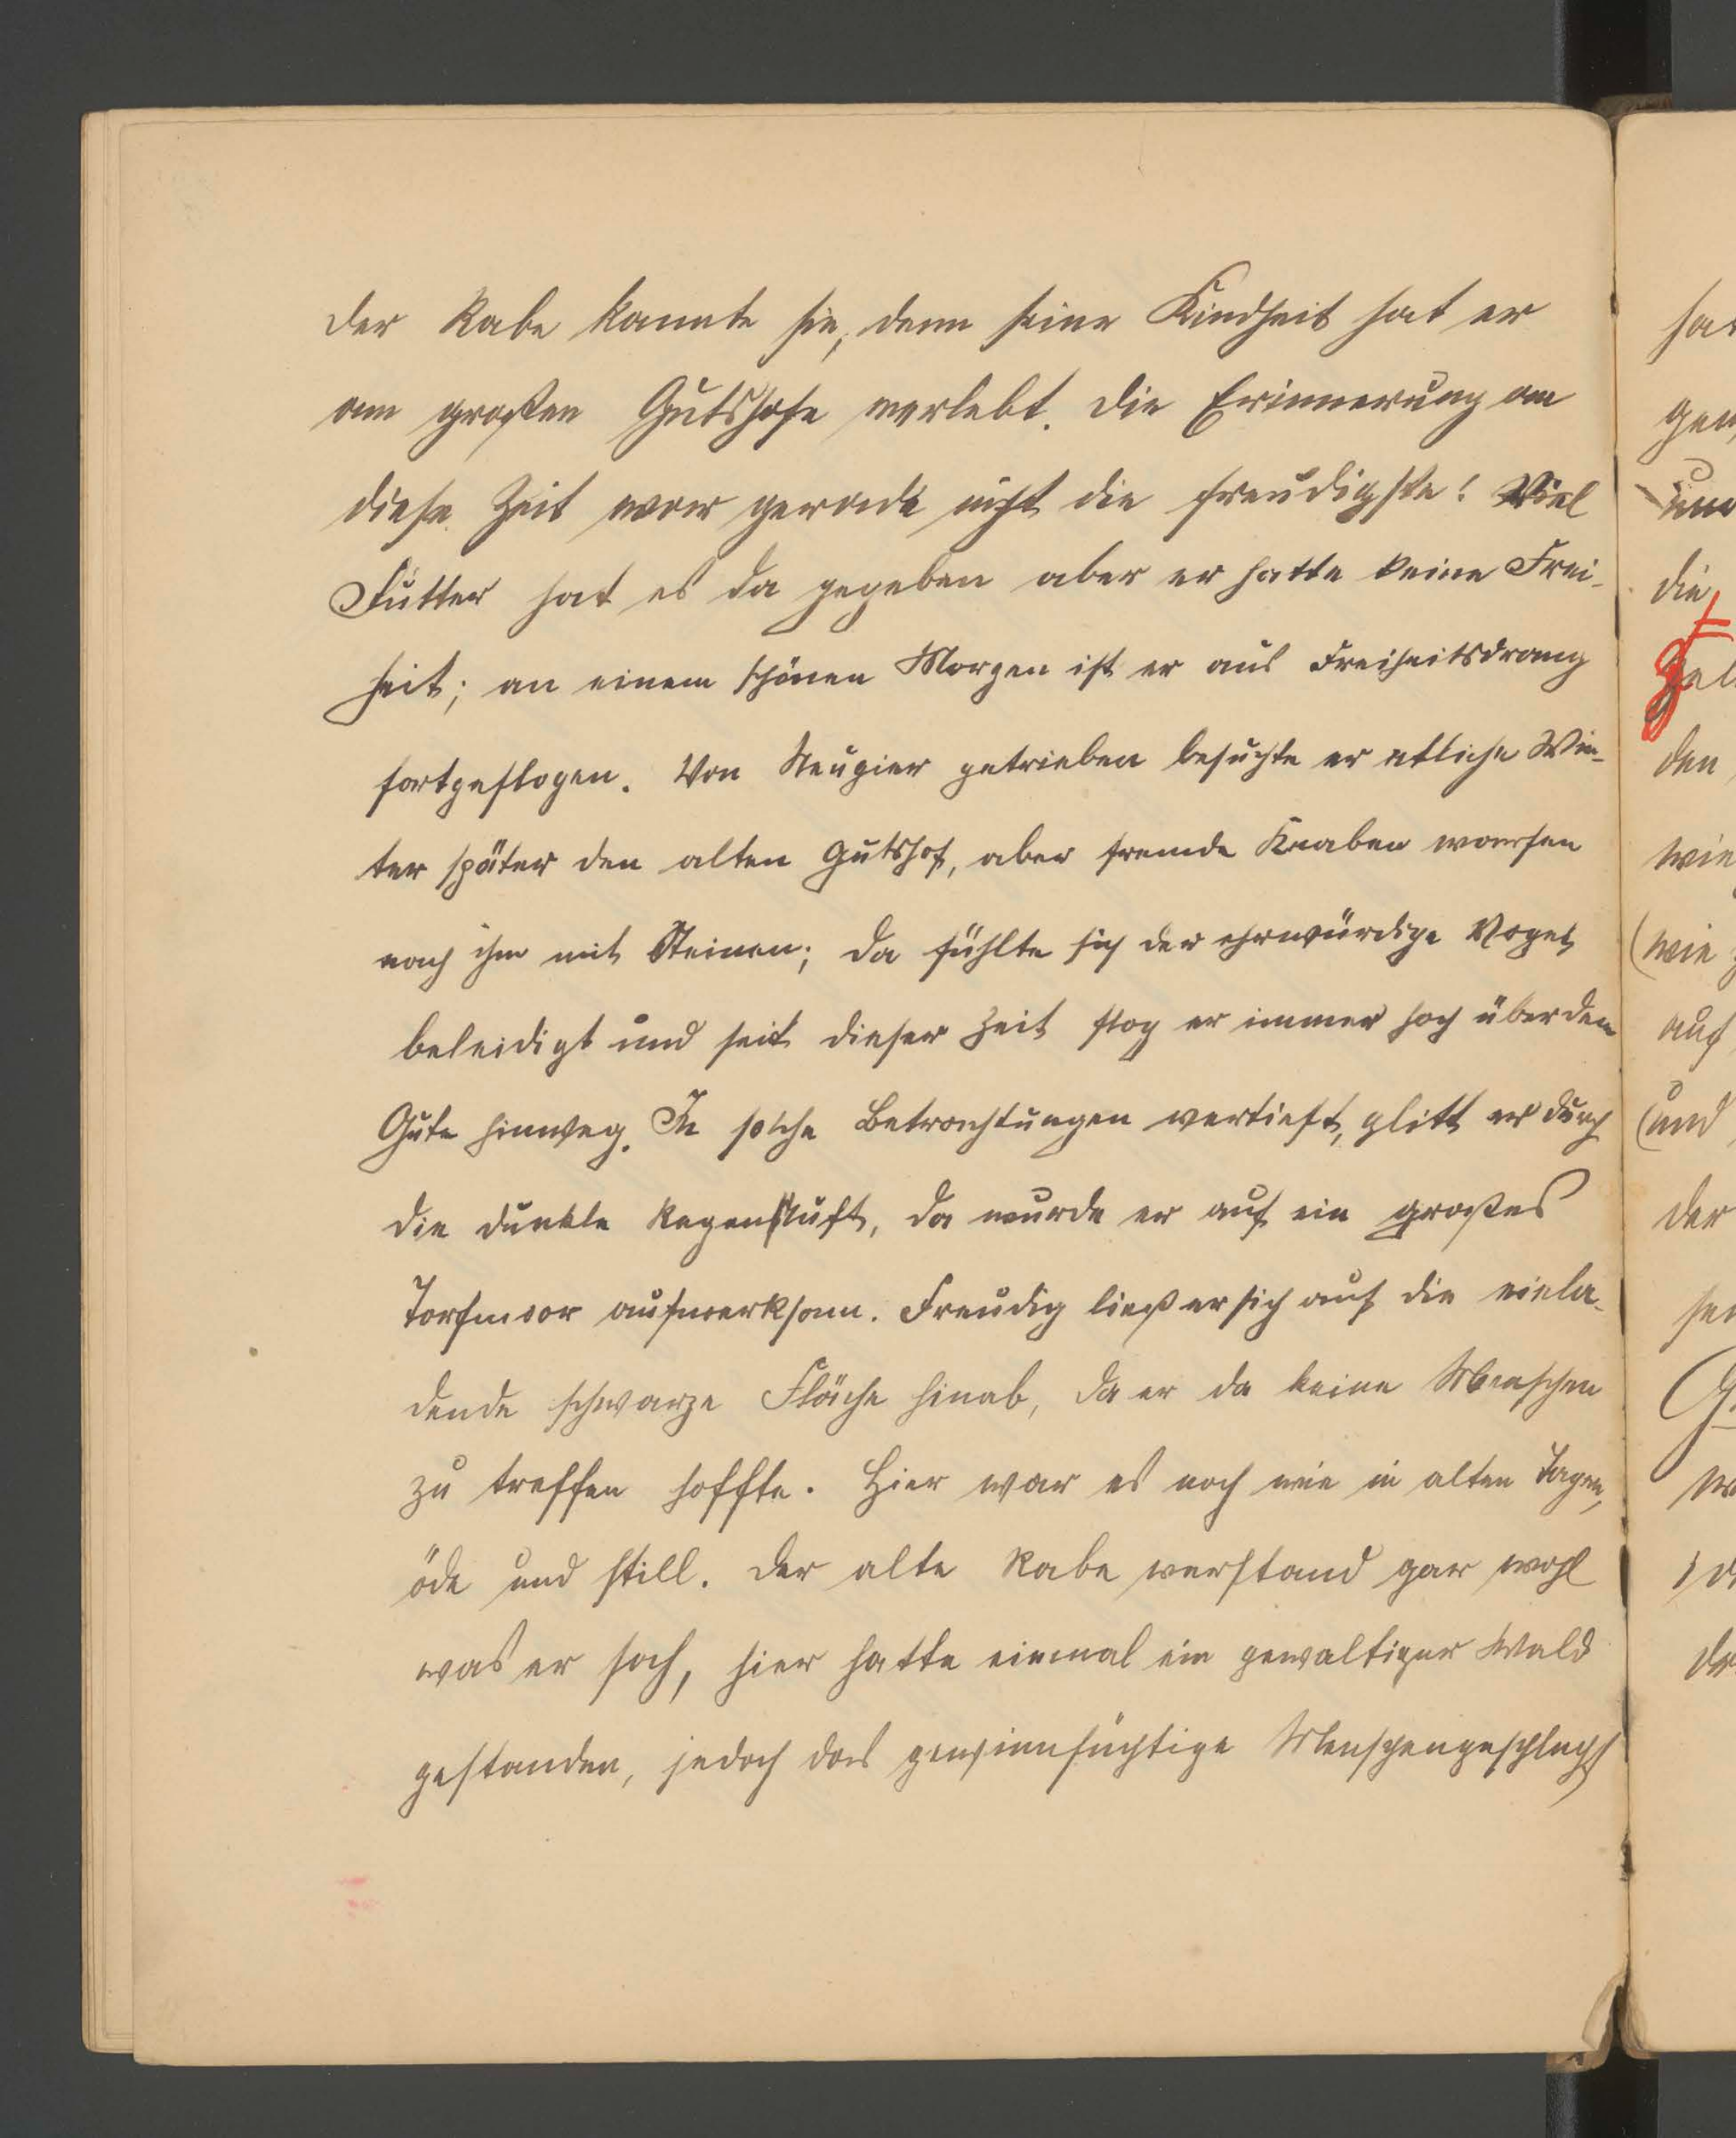 der Rabe kannte sie, denn seine Kindheit hat er
am großen Gutshofe verlebt. Die Erinnerung an
diese Zeit war gerade nicht die freudigste! Viel
Futter hat es da gegeben aber er hatte keine Frei-
heit; an einem schönen Morgen ist er aus Freiheitsdrang
fortgeflogen. Von Neugier getrieben besuchte er etliche Win-
ter später den alten Gutshof, aber fremde Knaben warfen
nach ihm mit Steinen; da fühlte sich der ehrwürdige Vogel
beleidigt und seit dieser Zeit flog er immer hoch über dem
Gute hinweg. In solche Betrachtungen vertieft, glitt er durch
die dunkle Regenluft, da wurde er auf ein großes
Torfmoor aufmerksam. Freudig ließ er sich auf die einla-
dende schwarze Fläche hinab, da er da keine Menschen
zu treffen hoffte. Hier war es noch wie in alten Tagen,
öde und still. Der alte Rabe verstand gar wohl
was er sah, hier hatte einmal ein gewaltiger Wald
gestanden, jedoch das gewinnsüchtige Menschengeschlecht